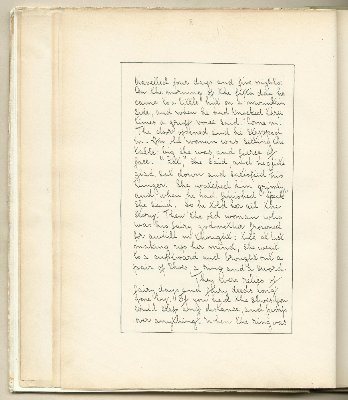 travelled four days and five nights.
On the morning of the fifth day he
came to a little hut on a mountain
side, and when he had knocked three
times a gruff voice said "Come in."
The door opened and he stepped
in. An old woman was setting the
table; big she was, and fierce of
face. "Eat," she said and he
sat down and satisfied his
hunger. She watched him grimly,
and when he had finished "Speak"
she said. So he told her all his
story. Then the old woman who
was his fairy godmother frowned
for awhile in thought: till at last
making up her mind, she went
to a cupboard and brought out a
pair of shoes, a ring and a sword.
They were relics of
fairy days and fairy deeds long
gone by. "If you used the shoes you
could step any distance, and jump
over anything. When the ring was